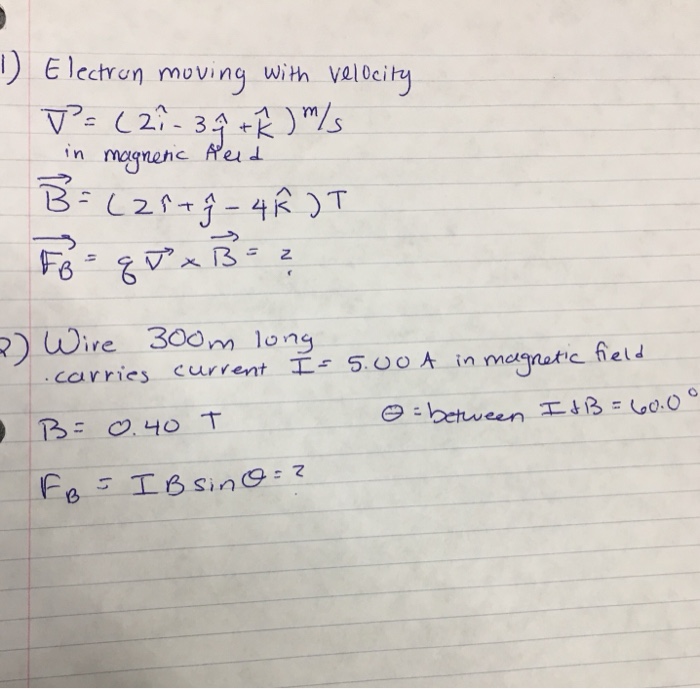 1) Electron moving with velocity
V⃗ = (2î - 3ĵ + k̂) m/s
in magnetic field
B⃗ = (2î + ĵ - 4k̂) T
F⃗B = q V⃗ × B⃗ = ?
2) Wire 300m long
.carries current I = 5.00 A in magnetic field
B = 0.40 T θ = between I & B = 60.0°
FB = I B sin θ = ?